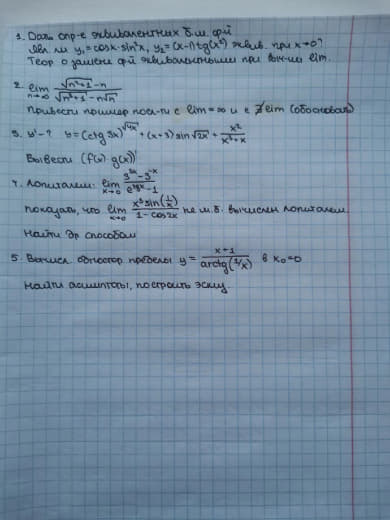 1. Дать опр-е эквивалентных б.м. ф-й
Явл. ли y₁ = cosx·sin²x, y₂ = (x-1)tg(x²) эквив. при x→0?
Теор о замене ф-й эквивалентными при выч-ии lim.
2. lim n→∞ (-√(n²+1) - n) / (√(n³+1) - n√n)
Привести пример посл-ти с lim = ∞ и с ∄ lim (обосновать)
3. y'-? y = (ctg 3x)^√(4x) + (x+3) sin √(2x) + x²/(x³+x)
Вывести (f(x)·g(x))'
4. Лопиталем: lim x→0 (3^(2x) - 5^(-x)) / (e^(tgx) - 1)
показать, что lim x→0 (x³ sin(1/x)) / (1 - cos2x) не м.б. вычислен лопиталем
Найти др способом
5. Вычисл. одностор пределы y = (x+1) / arctg(1/x) в x₀=0
Найти асимптоты, построить эскиз.